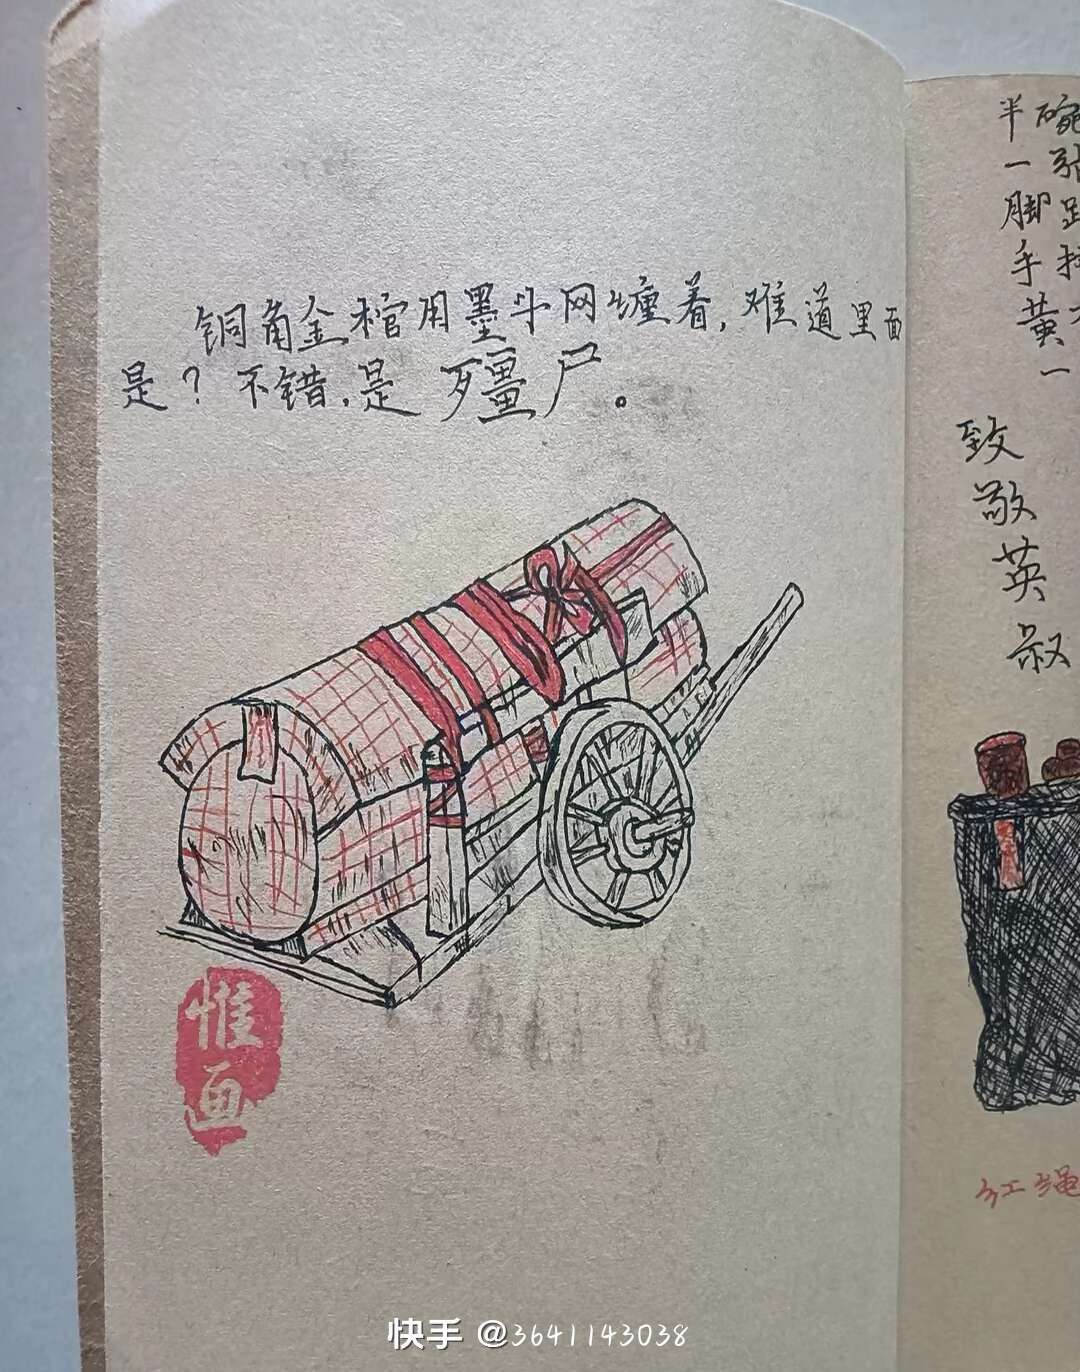 铜角金棺用墨斗网缠着,难道里面
是?不错,是殭尸。
半一脚手黄
碗
一
致敬英叔
惟画
红绳
快手 @3641143038